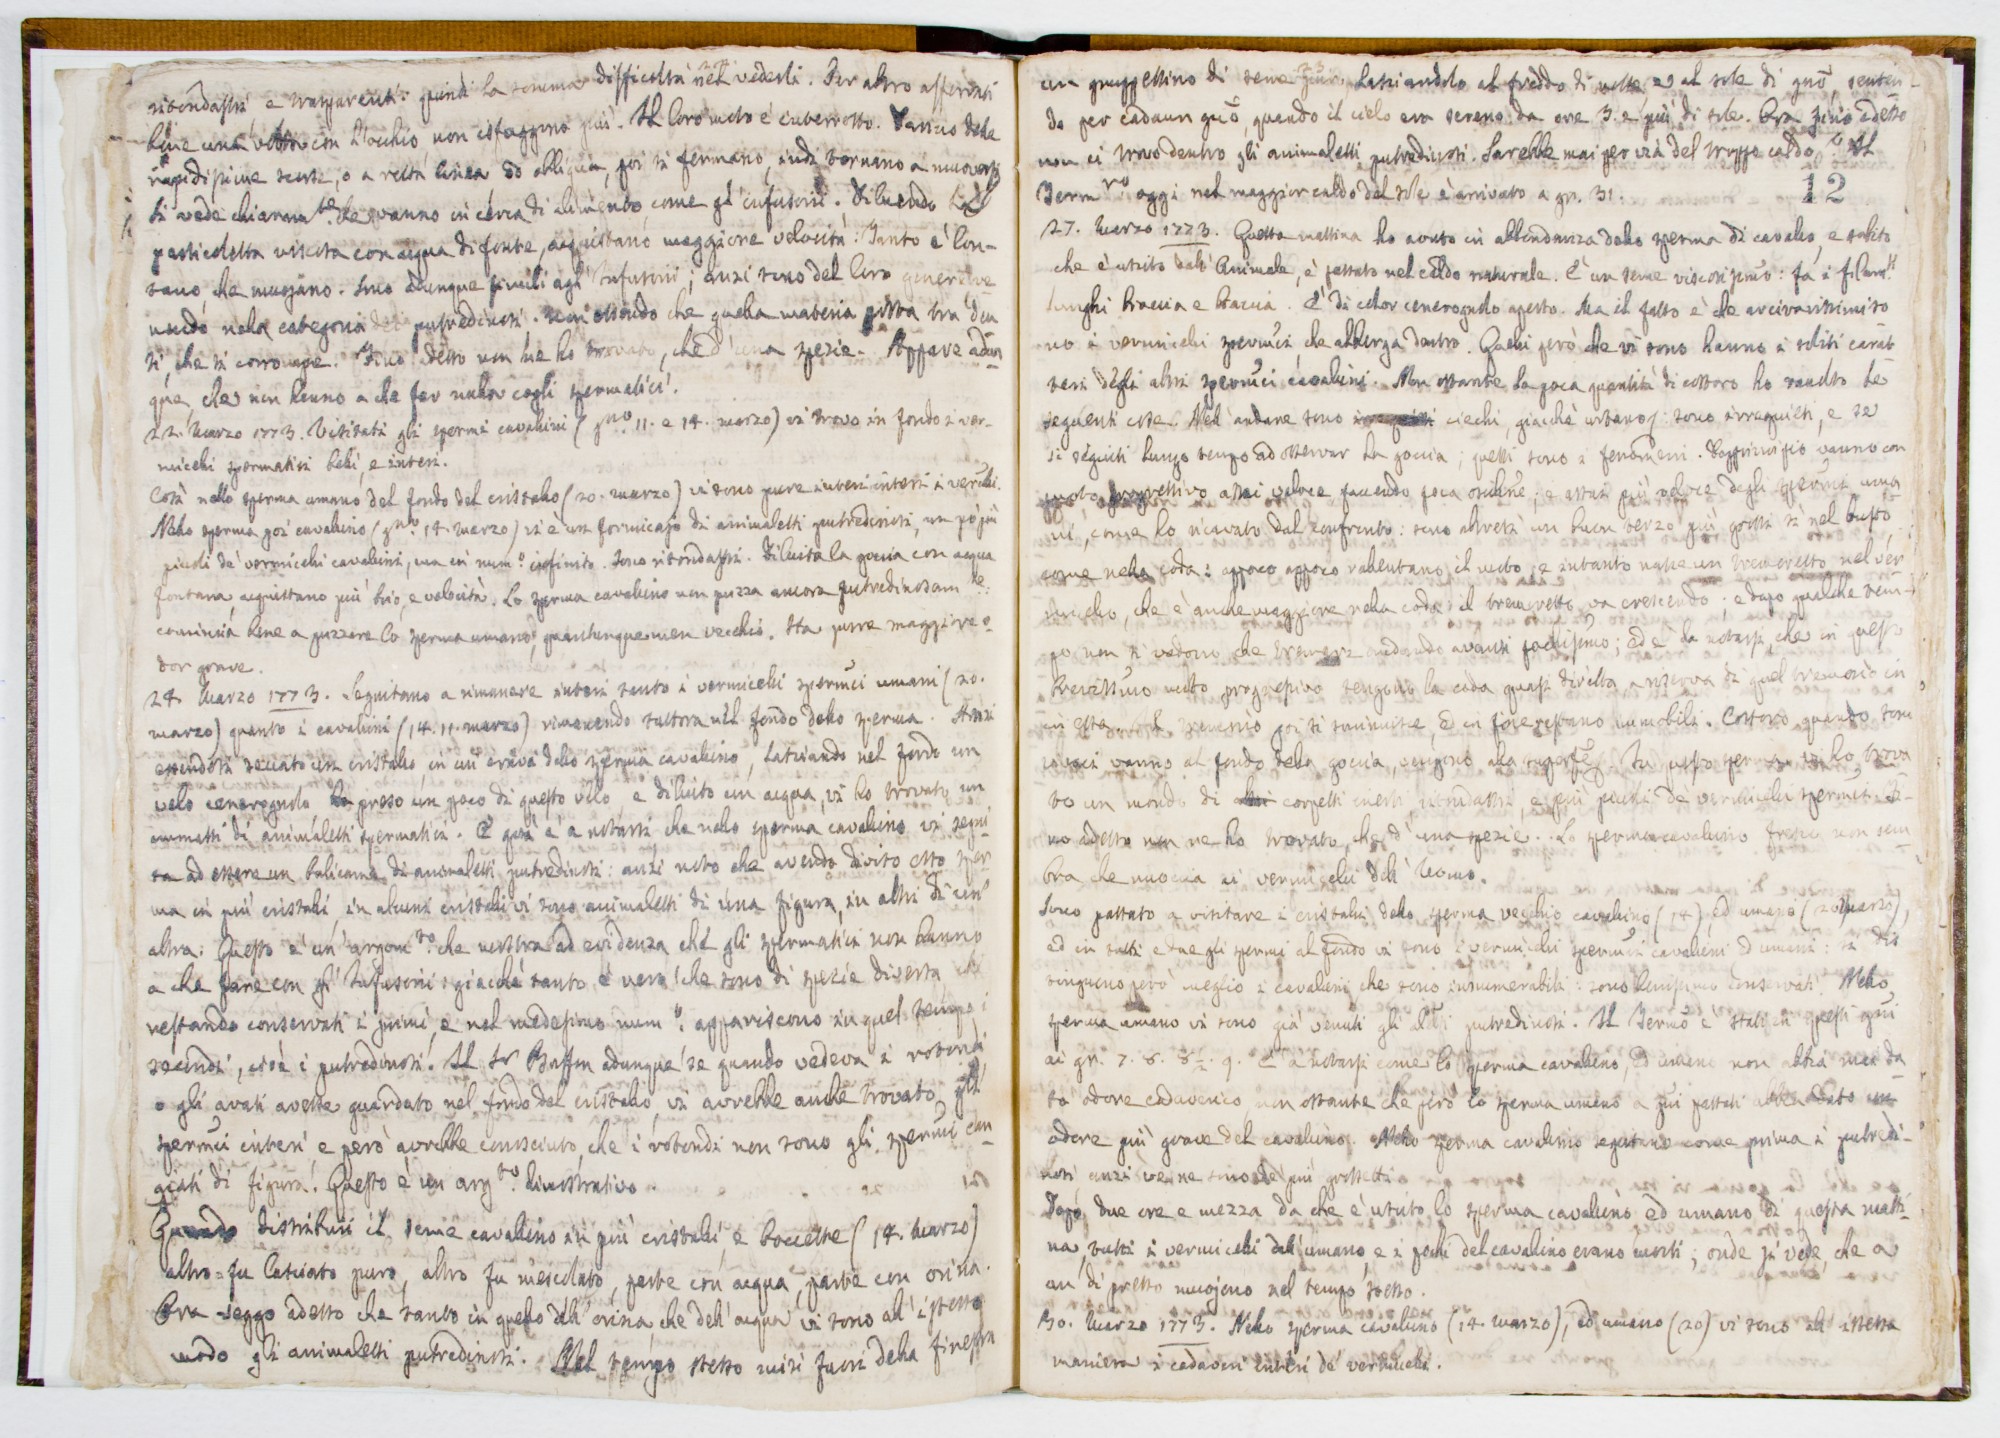 ritondastri, e trasparenti: quindi la somma difficoltà nel vederli. Per altro afferrati
bene una volta con l'occhio non isfuggono più. Il loro moto è interrotto. Vanno
rapidissime sentse, o a retta linea, od obbliqua, poi si fermano, indi tornano a muoversi
Si vede chiaram.te che vanno in cerca di alimento, come gl'infusorii. Diluendo la
particoletta viscosa con acqua di fonte, acquistano maggiore velocità: Tanto è lon-
tano, che muojano. Sono adunque simili agl'Infusorii; anzi sono del loro genere
nella categoria dei putredinosi. non essendo che quella materia posta tra den
ti, che si corrompe. Sino adesso non ne ho trovato, che d'una spezie. Appare adun
que, che non hanno a che far nulla cogli spermatici.
22. Marzo 1773. Visitati gli spermi cavallini (11. e 14. marzo) vi trovo in fondo i ver-
micelli spermatici belli, e interi.
Così nello sperma umano del fondo del cristallo (20. marzo) vi sono pure interi interi i vermlli.
Nello sperma poi cavallino (14. Marzo) vi è un formicajo di animaletti putredinosi, un pò più
piccoli de' vermicelli cavallini, ma in num.o infinito. Sono ritondastri. Diluita la goccia con acqua
fontana, acquistano più brio, e velocità. Lo sperma cavallino non puzza ancora putredinosam.te:
comincia bene a puzzare lo sperma umano, quantunque men vecchio. Ha pure maggiore o-
dor grave.
24. Marzo 1773. Seguitano a rimanere interi tanto i vermicelli spermci umani (20.
marzo) quanto i cavallini (14. 11. marzo) rimanendo tuttora nel fondo dello sperma. Anzi
essendosi seccato un cristallo, in cui v'era dello sperma cavallino, lasciando nel fondo un
velo cenerognolo ho preso un poco di questo velo, e diluito in acqua, vi ho trovato un
ammasso di animaletti spermatici. E però è a notarsi che nello sperma cavallino vi segui
ta ad essere un bulicame di animaletti putredinosi: anzi noto che avendo diviso esso sper
ma in più cristalli, in alcuni cristalli vi sono animaletti di una figura, in altri di un'
altra: Questo è un argom.to che mostra ad evidenza che gli spermatici non hanno
a che fare con gl'Infusorii: giacchè tanto è vero che sono di spezie diversa che
restando conservati i primi, e nel medesimo num.o appariscono in quel tempo i
secondi, cioè i putredinosi. Il Sr Buffon adunque se quando vedeva i rotondi
o gli ovati avesse guardato nel fondo del cristallo, vi avrebbe anche trovato gli
spermci interi e però avrebbe conosciuto, che i rotondi non sono gli spermci can
giati di figura. Questo è un arg.to dimostrativo.
Quando distribuii il seme cavallino in più cristalli, e boccette (14. Marzo)
altro fu lasciato puro, altro fu mescolato, parte con acqua, parte con orina.
Ora veggo adesso che tanto in quello dell'orina, che dell'acqua vi sono all'istesso
modo gli animaletti putredinosi. Nel tempo stesso misi fuori della finestra
un gruppettino di seme lasciandolo al freddo di notte, ed al sole di gno, senten-
do per cadaun gno, quando il cielo era sereno da ore 3. e più di sole. Ora sino adesso
non ci trovo dentro gli animaletti putredinosi. Sarebbe mai per via del troppo caldo? Il
Term.ro oggi nel maggior caldo del sole è arrivato a gr. 31.
12
27. Marzo 1773. Questa mattina ho avuto in abbondanza dello sperma di cavallo, e subito
che è uscito dall'Animale, è passato nel caldo naturale. È un seme viscosissimo: fa i filam.ti
lunghi braccia e braccia. È di color cenerognolo aperto. Ma il fatto è che arcirarissimi so
no i vermicelli spermci, che alberga dentro. Quelli però che vi sono hanno i soliti carat
teri degli altri spermci cavallini. Non ostante la poca quantità di costoro ho raccolto le
seguenti cose. Nell'andare sono ciechi, giacchè urtano: sono irrequieti, e se
si seguiti lungo tempo ad osservar la goccia; questi sono i fenomeni. Dapprincipio vanno con
moto progressivo assai veloce facendo poca ; e assai più veloce degli spermci uma
ni, come ho ricavato dal confronto: sono altresì un buon terzo più grossi sì nel busto,
come nella coda: appoco appoco rallentano il moto, e intanto nasce un tremoretto nel ver
micello, che è anche maggiore nella coda: il tremoretto va crescendo; e dopo qualche tem-
po non si vedono che tremare andando avanti pochissimo; ed è da notarsi, che in questo
brevissimo moto progressivo tengono la coda quasi diritta a riserva di quel tremorio in
essa. poi si sminuisce, ed in fine restano immobili. Costoro quando sono
vanno al fondo della goccia, vengono alla superfce. In questo sperma vi ho trova
to un mondo di corpetti inerti, ritondastri, e più piccoli de' vermicelli spermci. Si-
no adesso non ne ho trovato, che d'una spezie. Lo sperma cavallino fresco, non sem
bra che nuocia ai vermicelli dell'Uomo.
Sono passato a visitare i cristalli dello sperma vecchio cavallino (14) ed umano (20 marzo),
ed in tutti e due gli spermi al fondo vi sono i vermicelli spermci cavallini ed umani: si dis
tinguono però meglio i cavallini che sono innumerabili: sono benissimo conservati. Nello
sperma umano vi sono già venuti gli altri putredinosi. Il Termo è stato in questi gni
ai gr. 7. 8. 8½. 9. È a notarsi come lo sperma cavallino, ed umano non abbia man da
to odore cadaverico, non ostante che però lo sperma umano a gni passati abbia dato un
odore più grave del cavallino. Nello sperma cavallino seguitano come prima i putredi-
nosi anzi ve ne sono de' più grossetti.
Dopo due ore e mezza da che è uscito lo sperma cavallino ed umano di questa matti-
na, tutti i vermicelli dell'umano, e i pochi del cavallino erano morti; onde si vede, che a
un di presso muojono nel tempo stesso.
30. Marzo 1773. Nello sperma cavallino (14. marzo), ed umano (20) vi sono all'istessa
maniera i cadaveri interi de' vermicelli.